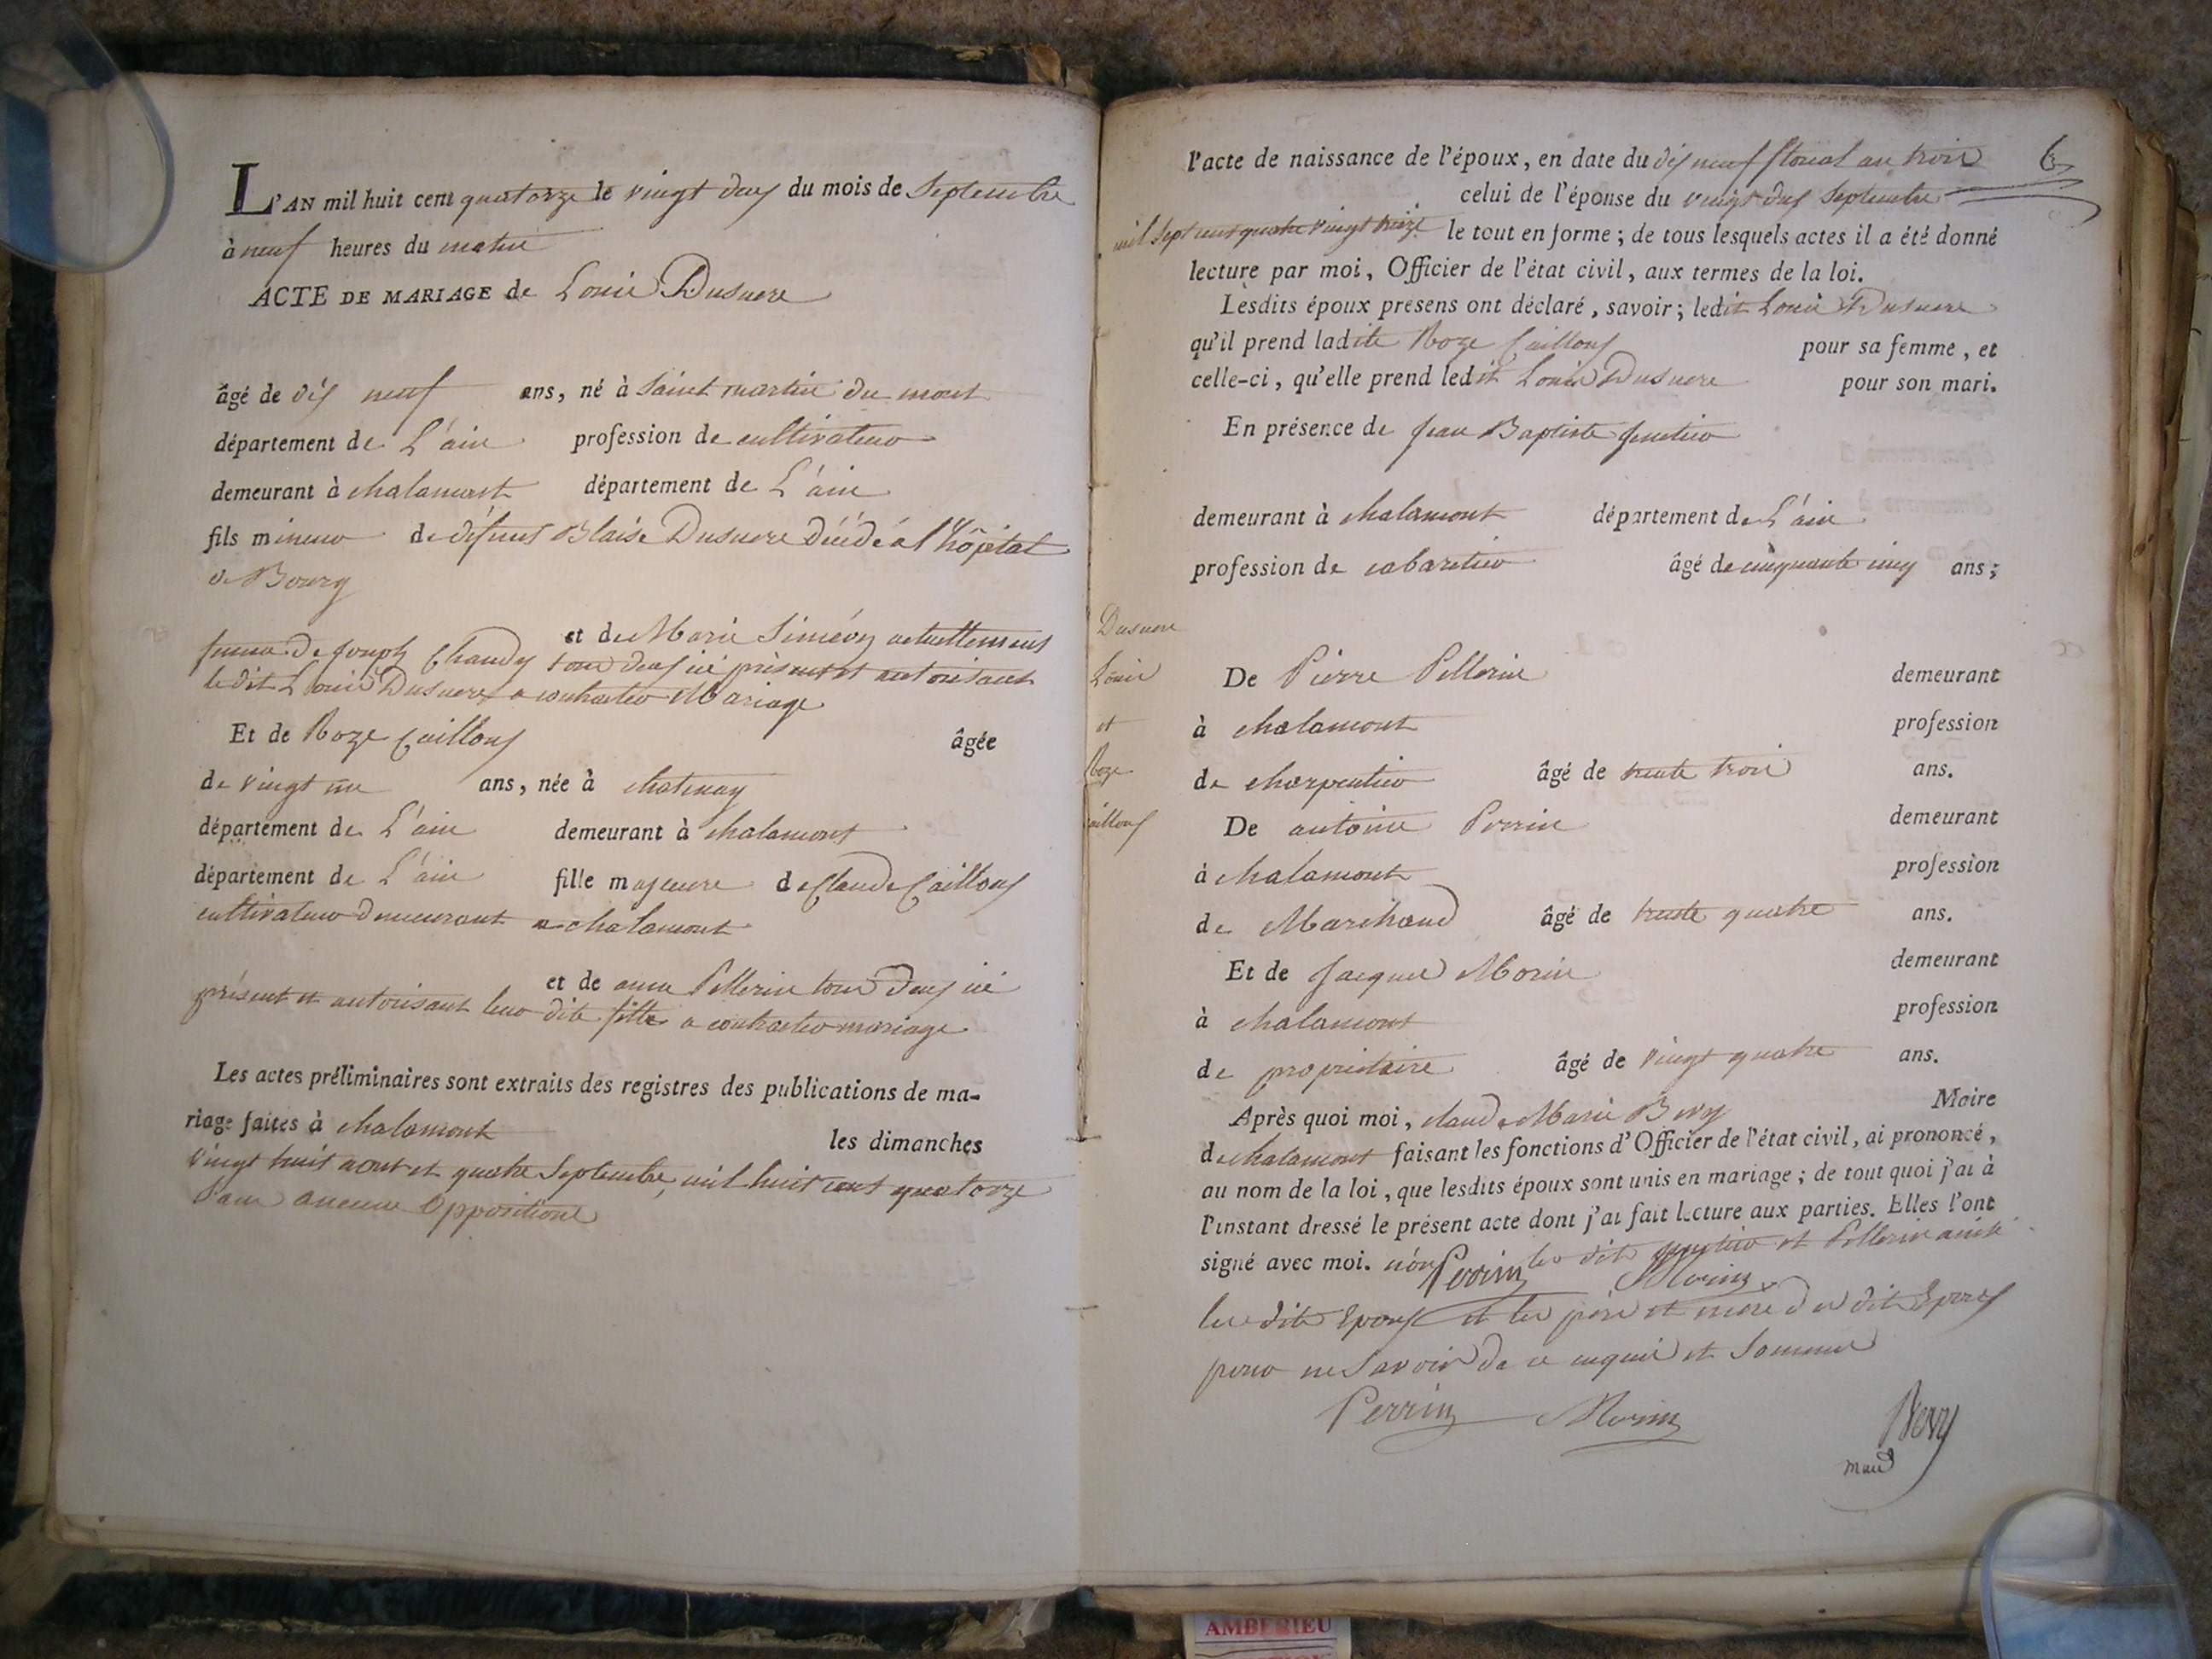 L'AN mil huit cent quatorze le vingt deux du mois de Septembre
à neuf heures du matin
ACTE DE MARIAGE de Louis Dusuere
âgé de dix neuf ans, né à Saint martin du mont
département de L'ain profession de cultivateur
demeurant à chalamont département de L'ain
fils mineur de défunt Blaise Dusuere décédé a l'hôpital
de Bourg
et de Marie Siméon actuellement
femme de Joseph Chaudy tous deux ici présent et autorisant
le dit Louis Dusuere a contracter Mariage
Et de Roze Cailloux âgée
de vingt un ans, née à chatenay
département de L'ain demeurant à chalamont
département de L'ain fille majeure de Claude Cailloux
cultivateur demeurant a chalamont
et de anne Pellerin tous deux ici
présent et autorisant leur dite fille a contracter mariage
Les actes préliminaires sont extraits des registres des publications de ma-
riage faites à chalamont les dimanches
vingt huit aout et quatre Septembre mil huit cent quatorze
Sans aucune Oppositions
6
l'acte de naissance de l'époux, en date du dix neuf floréal an trois
celui de l'épouse du vingt deux Septembre
mil Sept cent quatre vingt treize le tout en forme ; de tous lesquels actes il a été donné
lecture par moi, Officier de l'état civil, aux termes de la loi.
Lesdits époux présens ont déclaré, savoir ; ledit Louis Dusuere
qu'il prend ladite Roze Cailloux pour sa femme, et
celle-ci, qu'elle prend ledit Louis Dusuere pour son mari.
En présence de Jean Baptiste
demeurant à chalamont département de L'ain
profession de cabaretier âgé de cinquante cinq ans ;
Dusuere
Louis
et
Roze
Cailloux
De Pierre Pellerin demeurant
à chalamont profession
de charpentier âgé de trente trois ans.
De antoine Perrin demeurant
à chalamont profession
de Marchand âgé de trente quatre ans.
Et de Jacques Morin demeurant
à chalamont profession
de propriétaire âgé de vingt quatre ans.
Après quoi moi, claude Marie Maire
de chalamont faisant les fonctions d'Officier de l'état civil, ai prononcé,
au nom de la loi, que lesdits époux sont unis en mariage ; de tout quoi j'ai à
l'instant dressé le présent acte dont j'ai fait lecture aux parties. Elles l'ont
signé avec moi. non les dits et Pellerin
Perrin Morin
les dits Epoux et les père et mère des dits Epoux
pour ne Savoir de ce enquis et Sommés
Perrin Morin
maire
AMBERIEU